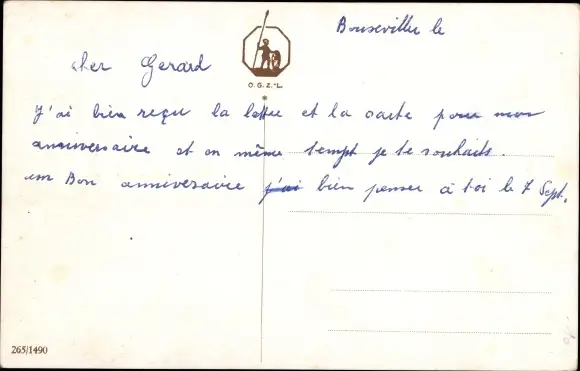 Bouseviller le
cher Gerard
O.G.Z.-L.
J'ai bien reçu la lettre et la carte pour mon
anniversaire et en même tempt je te souhaits.
um Bon anniversaire j'ai bien penser à toi le 7 Sept.
265/1490